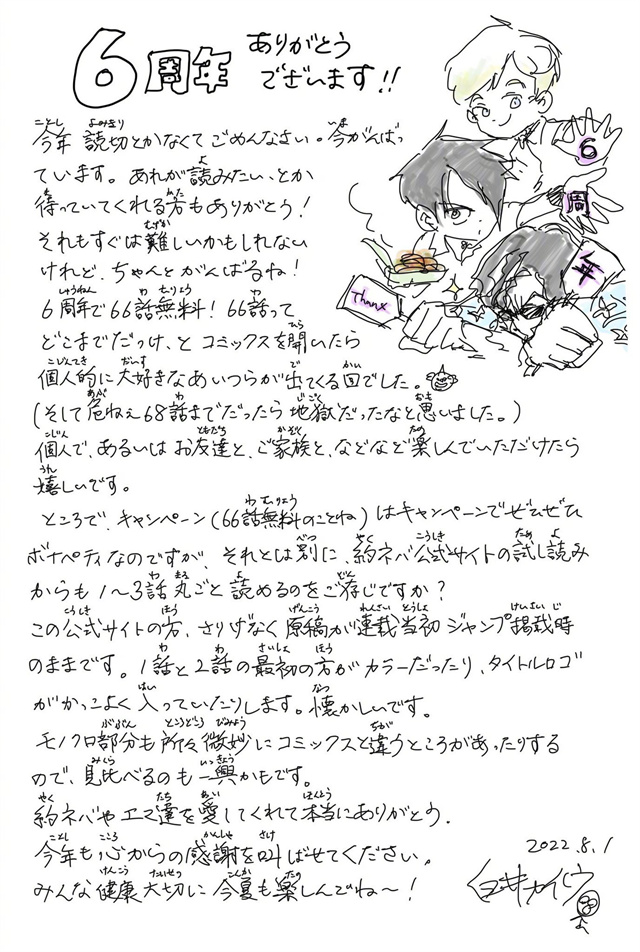 6周年 ありがとう
ございます!!
今年 読切とかなくてごめんなさい。今がんばっ
ています。あれが読みたい、とか
待っていてくれる方もありがとう!
それもすぐは難しいかもしれない
けれど、ちゃんとがんばるね!
6周年で66話無料! 66話って
どこまでだっけ、とコミックスを開いたら
個人的に大好きなあいつらが出てくる回でした。
(そして危ねぇ68話までだったら地獄だったなと思いました。)
個人で、あるいはお友達と、ご家族と、などなど楽しんでいただけたら
嬉しいです。
ところで、キャンペーン(66話無料のことね)はキャンペーンでぜひぜひ
ボナペティなのですが、それとは別に、約ネバ公式サイトの試し読み
からも1〜3話丸ごと読めるのをご存じですか?
この公式サイトの方、さりげなく原稿が連載当初ジャンプ掲載時
のままです。1話と2話の最初の方がカラーだったり、タイトルロゴ
がかっこよく入っていたりします。懐かしいです。
モノクロ部分も所々微妙にコミックスと違うところがあったりする
ので、見比べるのも一興かもです。
約ネバやエマ達を愛してくれて本当にありがとう。
今年も心からの感謝を叫ばせてください。
みんな健康大切に今夏も楽しんでね〜!
6
周
年
Thanx
2022.8.1
白井カイウ